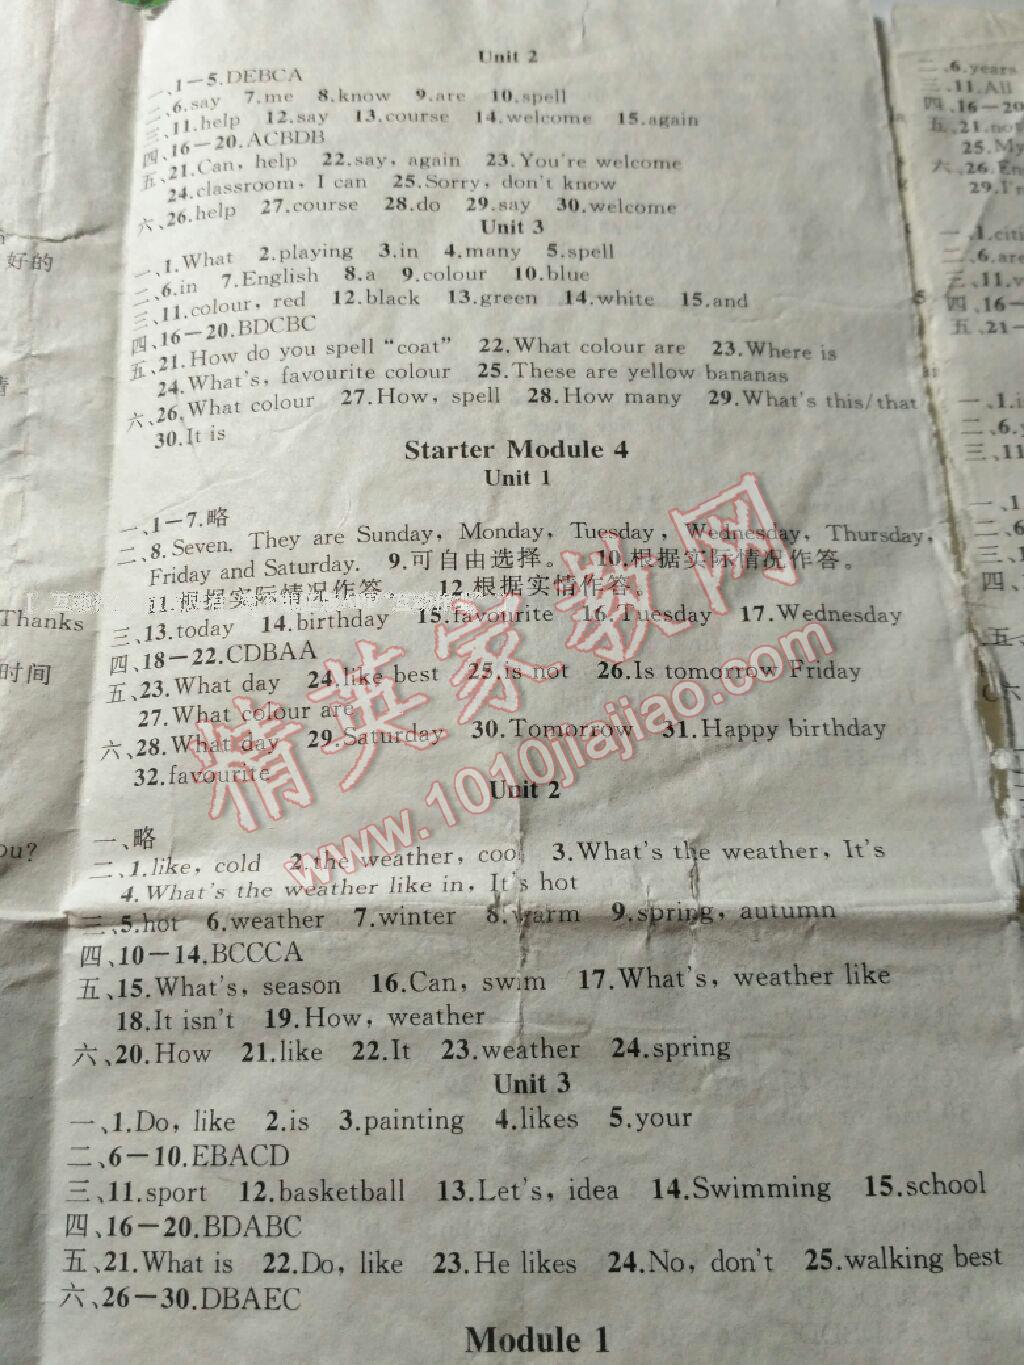 Unit 2
一、1－5.DEBCA
二、6.say 7.me 8.know 9.are 10.spell
三、11.help 12.say 13.course 14.welcome 15.again
四、16－20.ACBDB
五、21.Can, help 22.say, again 23.You're welcome
24.classroom, I can 25.Sorry, don't know
六、26.help 27.course 28.do 29.say 30.welcome
Unit 3
一、1.What 2.playing 3.in 4.many 5.spell
二、6.in 7.English 8.a 9.colour 10.blue
三、11.colour, red 12.black 13.green 14.white 15.and
四、16－20.BDCBC
五、21.How do you spell "coat" 22.What colour are 23.Where is
24.What's, favourite colour 25.These are yellow bananas
六、26.What colour 27.How, spell 28.How many 29.What's this/that
30.It is
Starter Module 4
Unit 1
一、1－7.略
二、8.Seven. They are Sunday, Monday, Tuesday, Wednesday, Thursday,
Friday and Saturday. 9.可自由选择。 10.根据实际情况作答。
11.根据实际情况作答。 12.根据实情作答。
三、13.today 14.birthday 15.favourite 16.Tuesday 17.Wednesday
四、18－22.CDBAA
五、23.What day 24.like best 25.is not 26.Is tomorrow Friday
27.What colour are
六、28.What day 29.Saturday 30.Tomorrow 31.Happy birthday
32.favourite
Unit 2
一、略
二、1.like, cold 2.the weather, cool 3.What's the weather, It's
4.What's the weather like in, It's hot
三、5.hot 6.weather 7.winter 8.warm 9.spring, autumn
四、10－14.BCCCA
五、15.What's, season 16.Can, swim 17.What's, weather like
18.It isn't 19.How, weather
六、20.How 21.like 22.It 23.weather 24.spring
Unit 3
一、1.Do, like 2.is 3.painting 4.likes 5.your
二、6－10.EBACD
三、11.sport 12.basketball 13.Let's, idea 14.Swimming 15.school
四、16－20.BDABC
五、21.What is 22.Do, like 23.He likes 24.No, don't 25.walking best
六、26－30.DBAEC
Module 1
好的
Thanks
时间
ou?
二、6.years
三、11.All
四、16－20
五、21.not
25.My
六、26.En
29.I'm
一、1.citi
二、6.are
三、11.v
四、16－
五、21－
一、1.i
二、6.
三、11
精英家教网
www.1010jiajiao.com